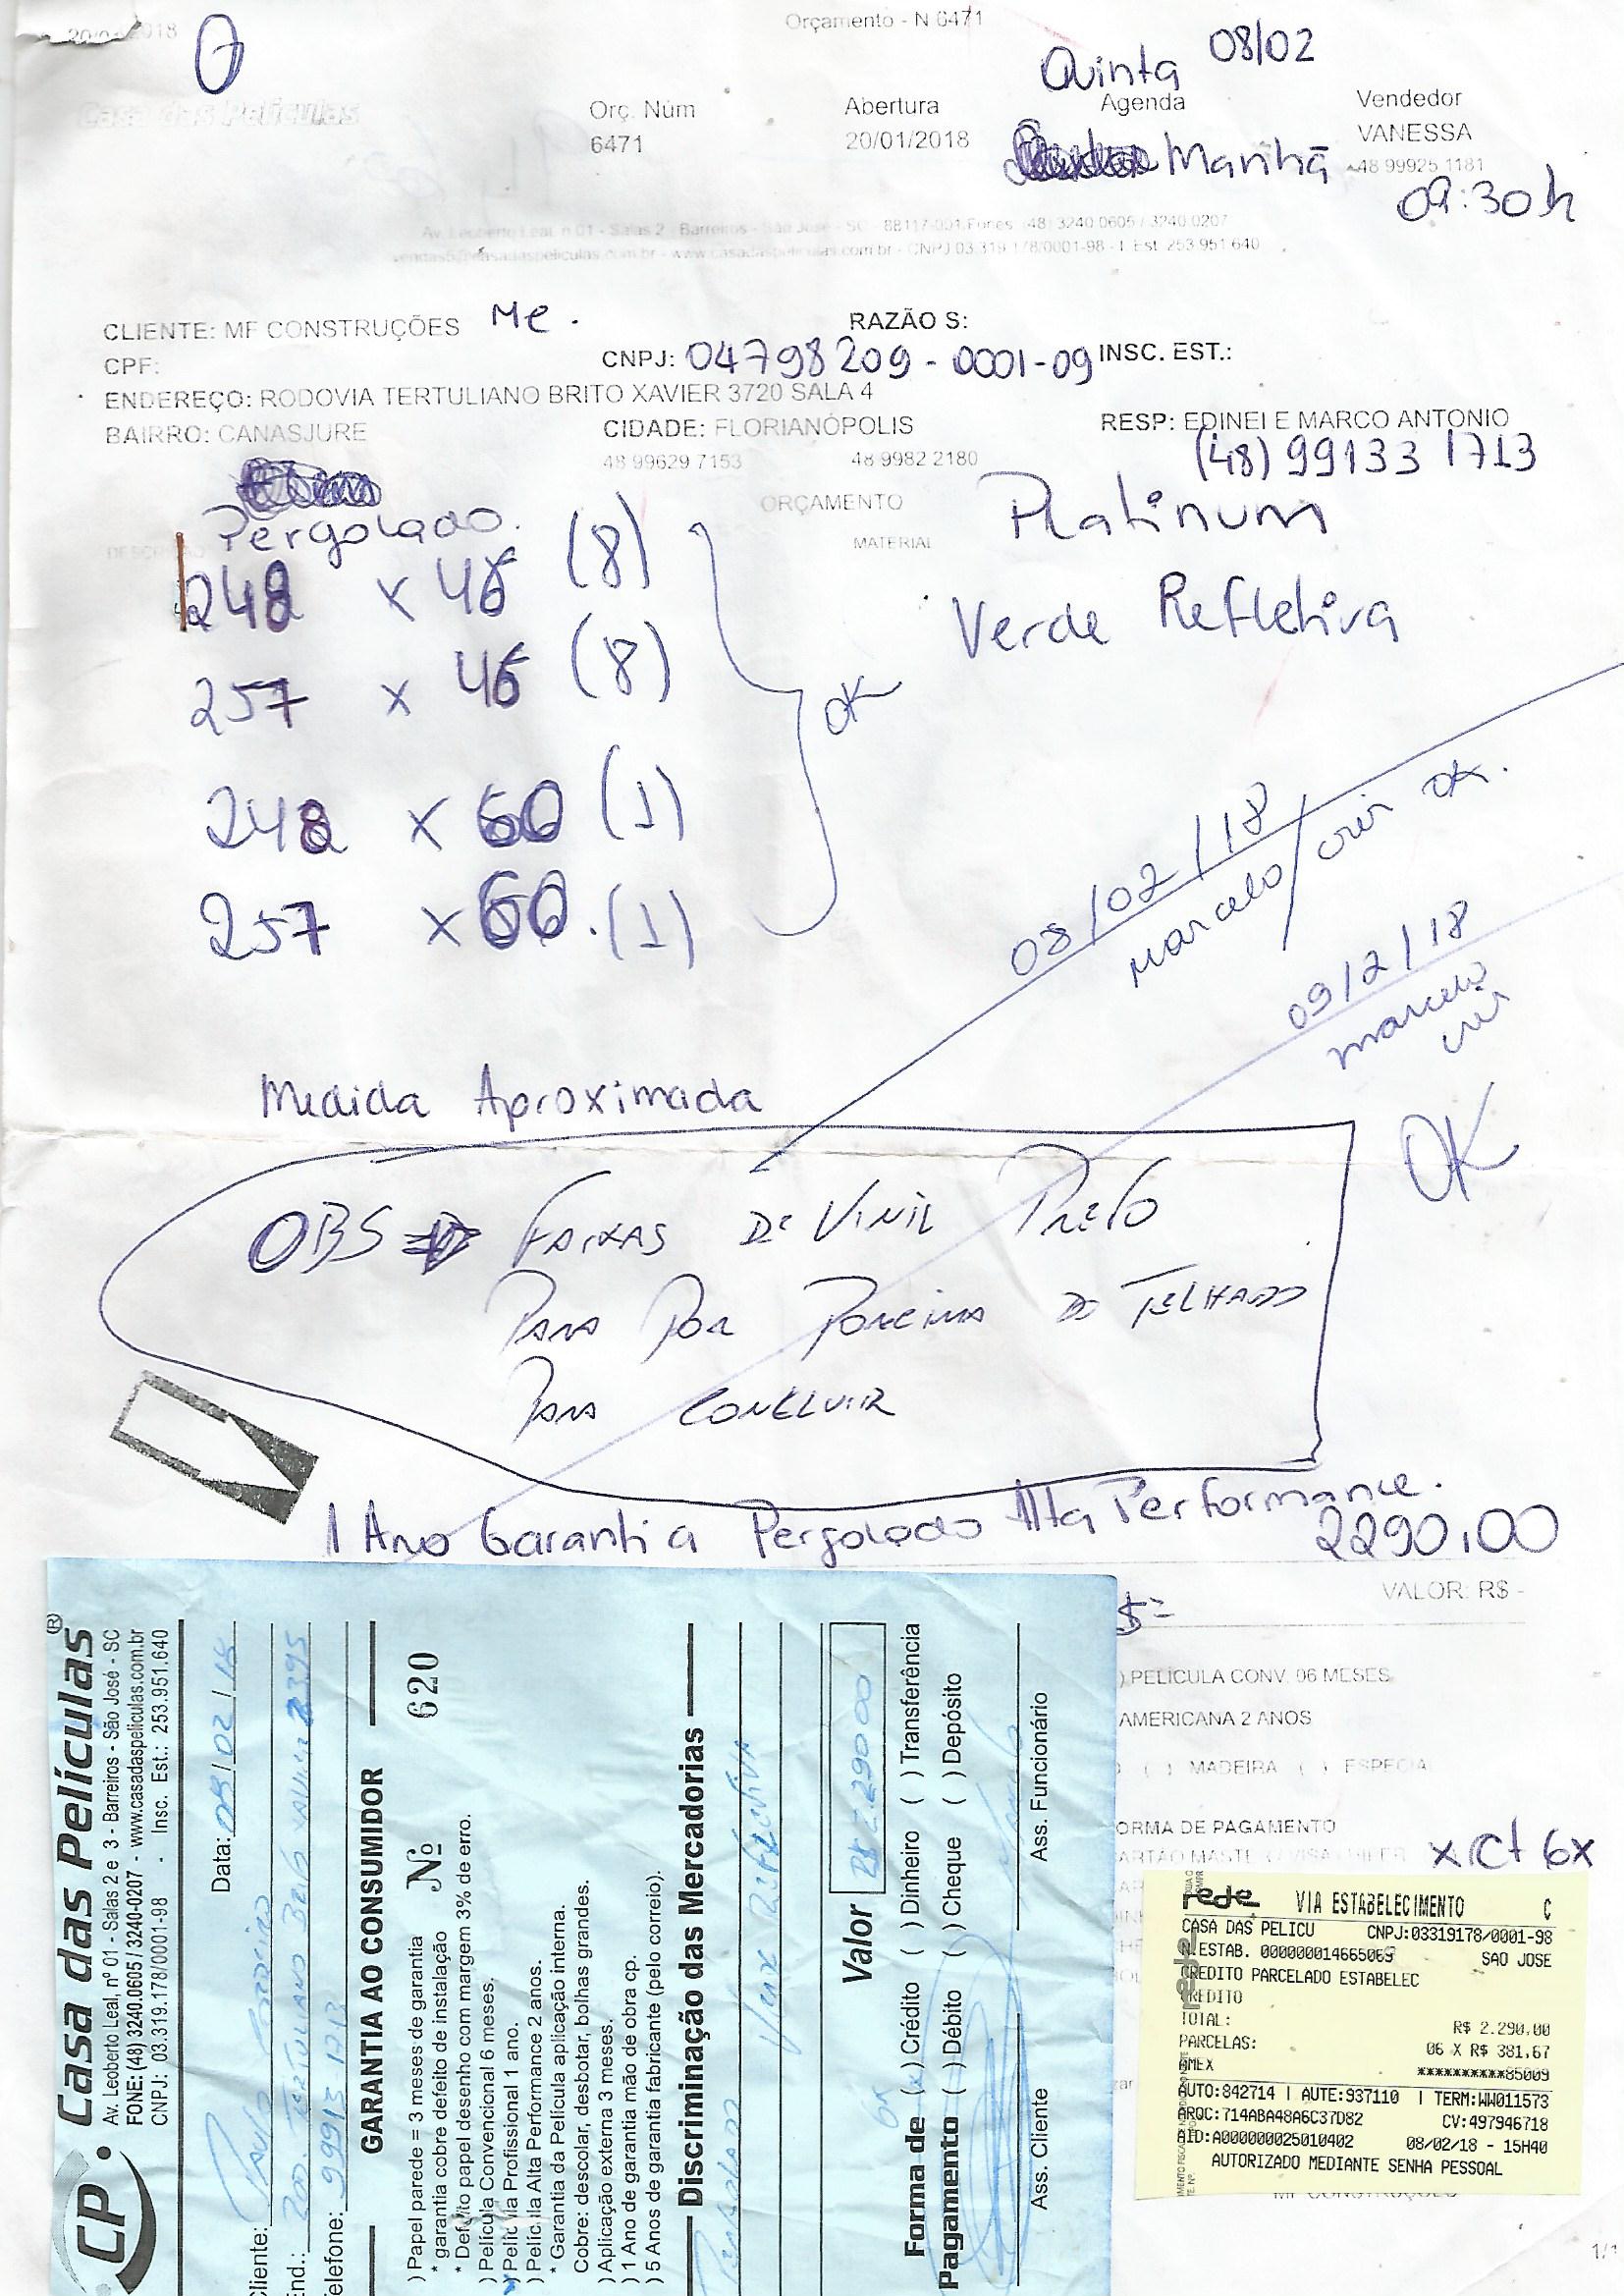 Orçamento - N 6471
2018
Quinta 08/02
Casa das Películas
Orç. Núm
Abertura
Agenda
Vendedor
6471
20/01/2018
Manhã
VANESSA
48 99925 1181
09:30h
Av. Leoberto Leal, n 01 - Salas 2 - Barreiros - São José - SC - 88117-001 Fones (48) 3240 0605 / 3240 0207
www.casadaspeliculas.com.br - CNPJ 03 319 178/0001-98 - I. Est. 253 951 640
CLIENTE: MF CONSTRUÇÕES Me.
RAZÃO S:
CPF:
CNPJ: 04798209-0001-09
INSC. EST.:
ENDEREÇO: RODOVIA TERTULIANO BRITO XAVIER 3720 SALA 4
BAIRRO: CANASJURE
CIDADE: FLORIANÓPOLIS
RESP: EDINEI E MARCO ANTONIO
48 99629 7153
48 9982 2180
(48) 99133 1713
ORÇAMENTO
Platinum
Pergolado.
MATERIAL
248 x 46 (8)
Verde Refletiva
257 x 46 (8)
OK
248 x 60 (1)
257 x 60. (1)
08/02/18
marcelo/cris ok.
09/2/18
marcelo
cris
OK
Medida Aproximada
OBS FAIXAS DE VINIL PRETO
PARA POR PORCIMA DO TELHADO
PARA CONCLUIR
1 Ano Garantia Pergolado Alta Performance.
2290,00
VALOR: R$ -
$=
) PELÍCULA CONV. 06 MESES
AMERICANA 2 ANOS
( ) MADEIRA ( ) ESPECIA
ORMA DE PAGAMENTO
x Ct 6x
CP.
Casa das Películas®
Av. Leoberto Leal, nº 01 - Salas 2 e 3 - Barreiros - São José - SC
FONE: (48) 3240.0605 / 3240-0207 - www.casadaspeliculas.com.br
CNPJ: 03.319.178/0001-98 - Insc. Est.: 253.951.640
Data: 09/02/18
Cliente: Paulo
End.: Tertuliano Brito Xavier 2395
Telefone: 99913 1713
GARANTIA AO CONSUMIDOR
Nº 620
) Papel parede = 3 meses de garantia
* garantia cobre defeito de instalação
* Defeito papel desenho com margem 3% de erro.
) Película Convencional 6 meses.
) Película Profissional 1 ano.
) Película Alta Performance 2 anos.
* Garantia da Película aplicação interna.
Cobre: descolar, desbotar, bolhas grandes.
) Aplicação externa 3 meses.
) 1 Ano de garantia mão de obra cp.
) 5 Anos de garantia fabricante (pelo correio).
Discriminação das Mercadorias
Pergolado Verde Refletiva
Valor R$ 2.290 00
6x
Forma de Pagamento
(x) Crédito ( ) Dinheiro ( ) Transferência
( ) Débito ( ) Cheque ( ) Depósito
Ass. Cliente
Ass. Funcionário
rede VIA ESTABELECIMENTO C
CASA DAS PELICU CNPJ:03319178/0001-98
N.ESTAB. 000000014665069 SAO JOSE
CREDITO PARCELADO ESTABELEC
CREDITO
TOTAL: R$ 2.290,00
PARCELAS: 06 X R$ 381,67
AMEX **********85009
AUTO:842714 | AUTE:937110 | TERM:WW011573
ARQC:714ABA48A6C37D82 CV:497946718
AID:A000000025010402 08/02/18 - 15H40
AUTORIZADO MEDIANTE SENHA PESSOAL
MF CONSTRUÇÕES
1/1